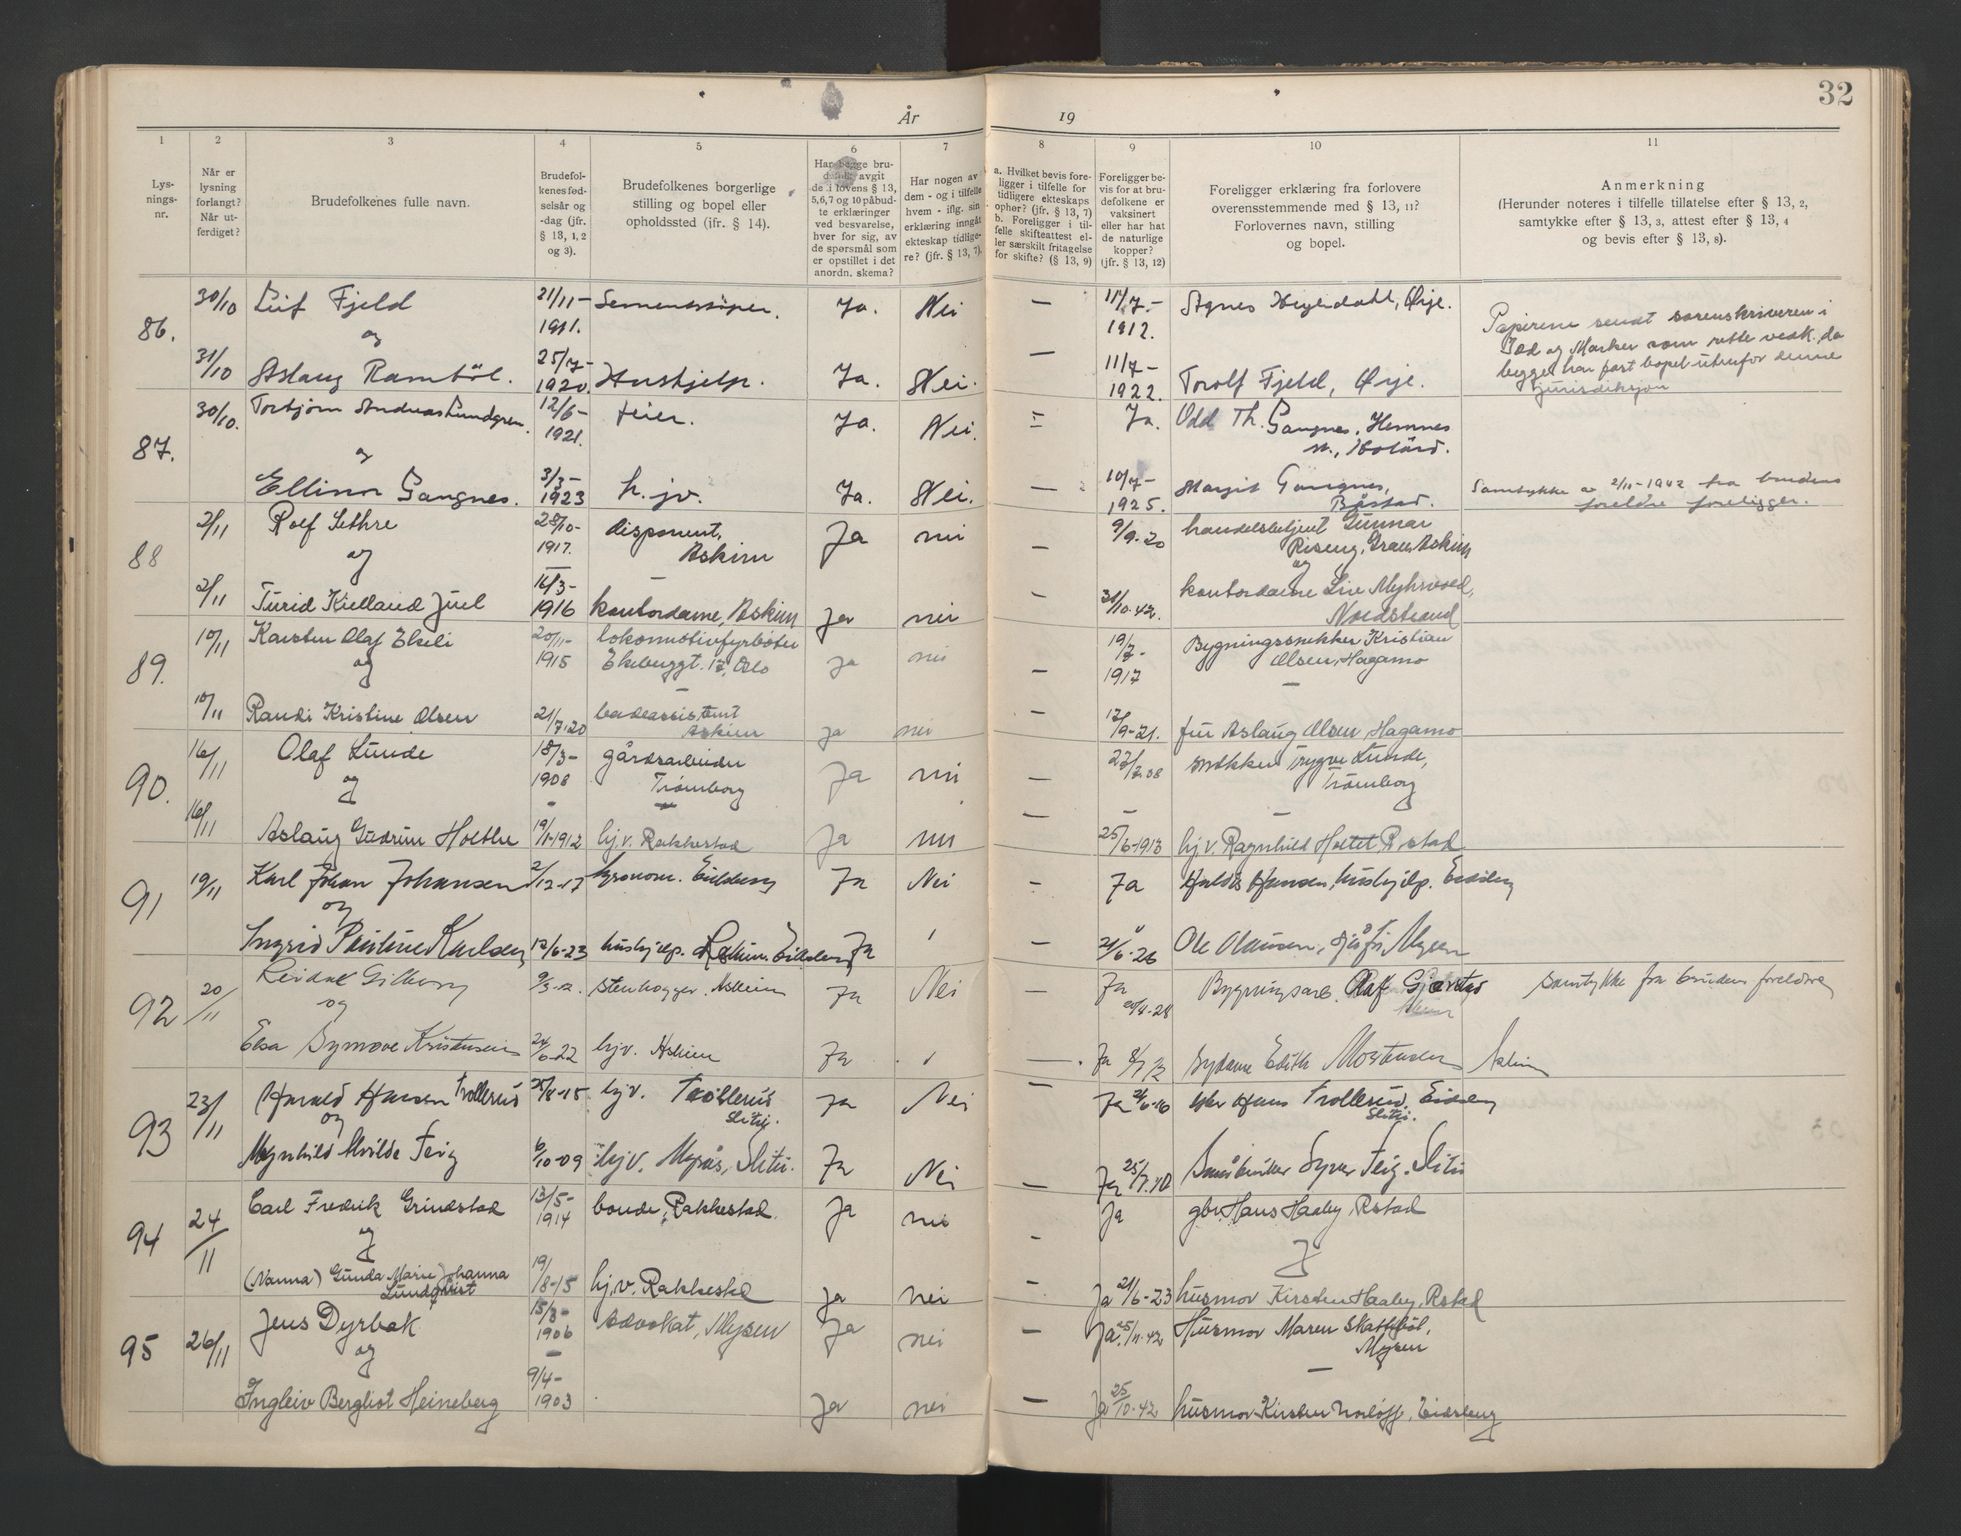 32
År 19
1 2 3 4 5 6 7 8 9 10 11
Lys-
nings-
nr.
Når er
lysning
forlangt?
Når ut-
ferdiget?
Brudefolkenes fulle navn.
Brudefol-
kenes fød-
selsår og
-dag (jfr.
§ 13, 1, 2
og 3).
Brudefolkenes borgerlige
stilling og bopel eller
opholdssted (ifr. § 14).
Har begge bru-
defolk avgit
de i lovens § 13,
5,6,7 og 10 påbud-
te erklæringer
ved besvarelse,
hver for sig, av
de spørsmål som
er opstillet i det
anordn. skema?
Har nogen av
dem - og i tilfelle
hvem - iflg. sin
erklæring inngått
ekteskap tidlige-
re? (jfr. § 13, 7).
a. Hvilket bevis fore-
ligger i tilfelle for
tidligere ekteskaps
ophør? (jfr. § 13, 7)
b. Foreligger i til-
felle skifteattest el-
ler særskilt fritagelse
for skifte? (§ 13, 9)
Foreligger be-
vis for at bru-
defolkene er
vaksinert
eller har hat
de naturlige
kopper?
(jfr. § 13, 12)
Foreligger erklæring fra forlovere
overensstemmende med § 13, 11?
Forlovernes navn, stilling
og bopel.
Anmerkning
(Herunder noteres i tilfelle tillatelse efter § 13, 2,
samtykke efter § 13, 3, attest efter § 13, 4
og bevis efter § 13, 8).
86. 30/10 Leif Fjeld 21/11-1911. Sementstøper. Ja. Nei — 11/7.-1912. Agnes Heyerdahl, Ørje.
og
31/10 Aslaug Ramtøl. 25/7-1920. Hushjelp. Ja. Nei. — 11/7-1922. Torolf Fjeld, Ørje.
Papirene sendt sorenskriveren i
Idd og Marker som rette vedk. da
begge har fast bopel utenfor denne
jurisdiksjon
87. 30/10. Torbjørn Andreas Lundgren. 12/6-1921. feier. Ja. Nei. Ja. Odd Th. Gangnes, Hemnes
og
Ellinor Gangnes. 3/3-1923 h.jv. Ja. Nei. — 10/7-1925. Margit Gangnes,
Båstad.
Samtykke av 2/11-1942 fra brudens
foreldre foreligger.
88 2/11 Rolf Sethre 28/10-1917. disponent,
Askim Ja nei — 9/9-20 handelsbetjent Gunnar
Riseng, Askim
og og
2/11 Turid Kielland Juel 16/3-1916 kontordame, Askim Ja nei — 31/10.42. kontordame Liv Myhrvold,
Nordstrand
89. 10/11 Karsten Olaf Ekeli 20/11-1915 lokomotivfyrbøter
Ekebuggt. 17, Oslo ja nei — 19/7-1917 Bygningssnekker Kristian
Olsen, Hagamo
og
10/11 Randi Kristine Olsen 21/7-20 badeassistent
Askim ja nei — 12/9-21. frk Aslaug Olsen, Hagamo
90. 16/11 Olaf Lunde 18/3-1908 gårdsarbeider
Trømborg Ja nei — 22/7.08 snekker Trygve Lunde,
Trømborg
og
16/11 Aslaug Gudrun Holthe 19/11-1912 hj.v. Rakkestad Ja nei — 25/6-1913 hj.v. Ragnhild Holtet R.stad
91 19/11 Karl Johan Johansen 2/12-17 Eidsberg Ja Nei — Ja Hansen, hushjelp. Eidsberg
og
Ingrid Pauline Karlsen 12/6-23 hushjelp. Eidsberg Ja — 21/6-26 Ole Olaussen, sjåfør, Mysen
92 20/11 Reidar stenhogger. Askim Ja Nei — Ja Bygningsarb. Olaf Gjerstad
samtykke fra brudens foreldre
og
Elsa Synnøve Kristensen 24/6-22 hjv. Askim Ja — Ja Edith Mortensen Askim
93 23/11 Harald Hansen Trollerud hjv. Trollerud
Slitu. Ja Nei — Ja Hans Trollerud, Eidsberg
Slitu.
og
Magnhild Alvilde Teig 6/10-09 hjv. Myrås, Slitu. Ja Nei — Ja 25/7.10 Småbruker Syver Teig. Slitu
94 24/11 Carl Fredrik Grindstad 13/5-1914 bonde, Rakkestad. Ja nei — Ja gbr. Hans Haaby, Rstad
og og
(Nanna) Gunda Marie Johanna
Lundqvist 19/8-15 hj.v. Rakkestd ja nei — Ja 21/6-23 husmor Kirsten Haaby, Rstad
95 26/11 Jens Dyrbak 15/3-1906 advokat, Mysen Ja nei — Ja 25/11.42 Husmor Maren Skattebøl,
Mysen
og
Ingleiv Bergliot Heineberg 9/4-1903 Ja nei — Ja 25/10.42 husmor Kirsten Eidsberg